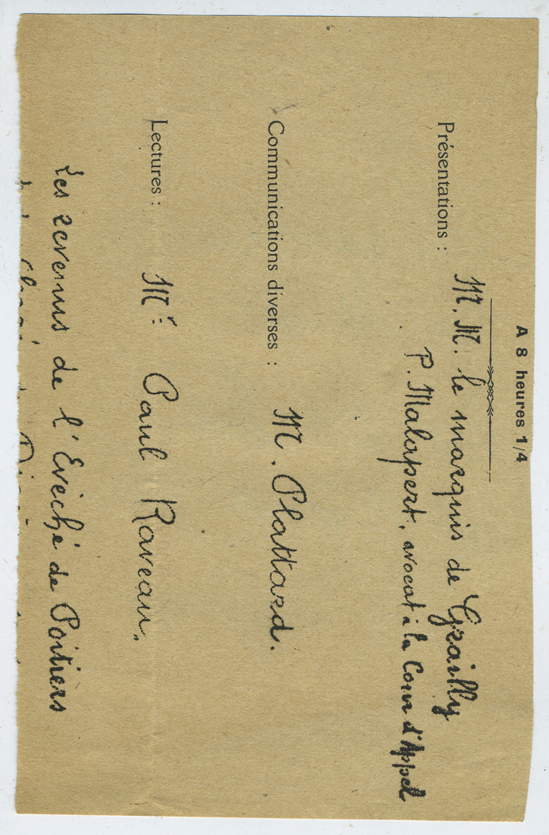 A 8 heures 1/4
Présentations : M. M. le marquis de Grailly
P. Malapert, avocat à la Cour d'Appel
Communications diverses : M. Plattard.
Lectures : Mr Paul Raveau.
Les revenus de l'Evêché de Poitiers